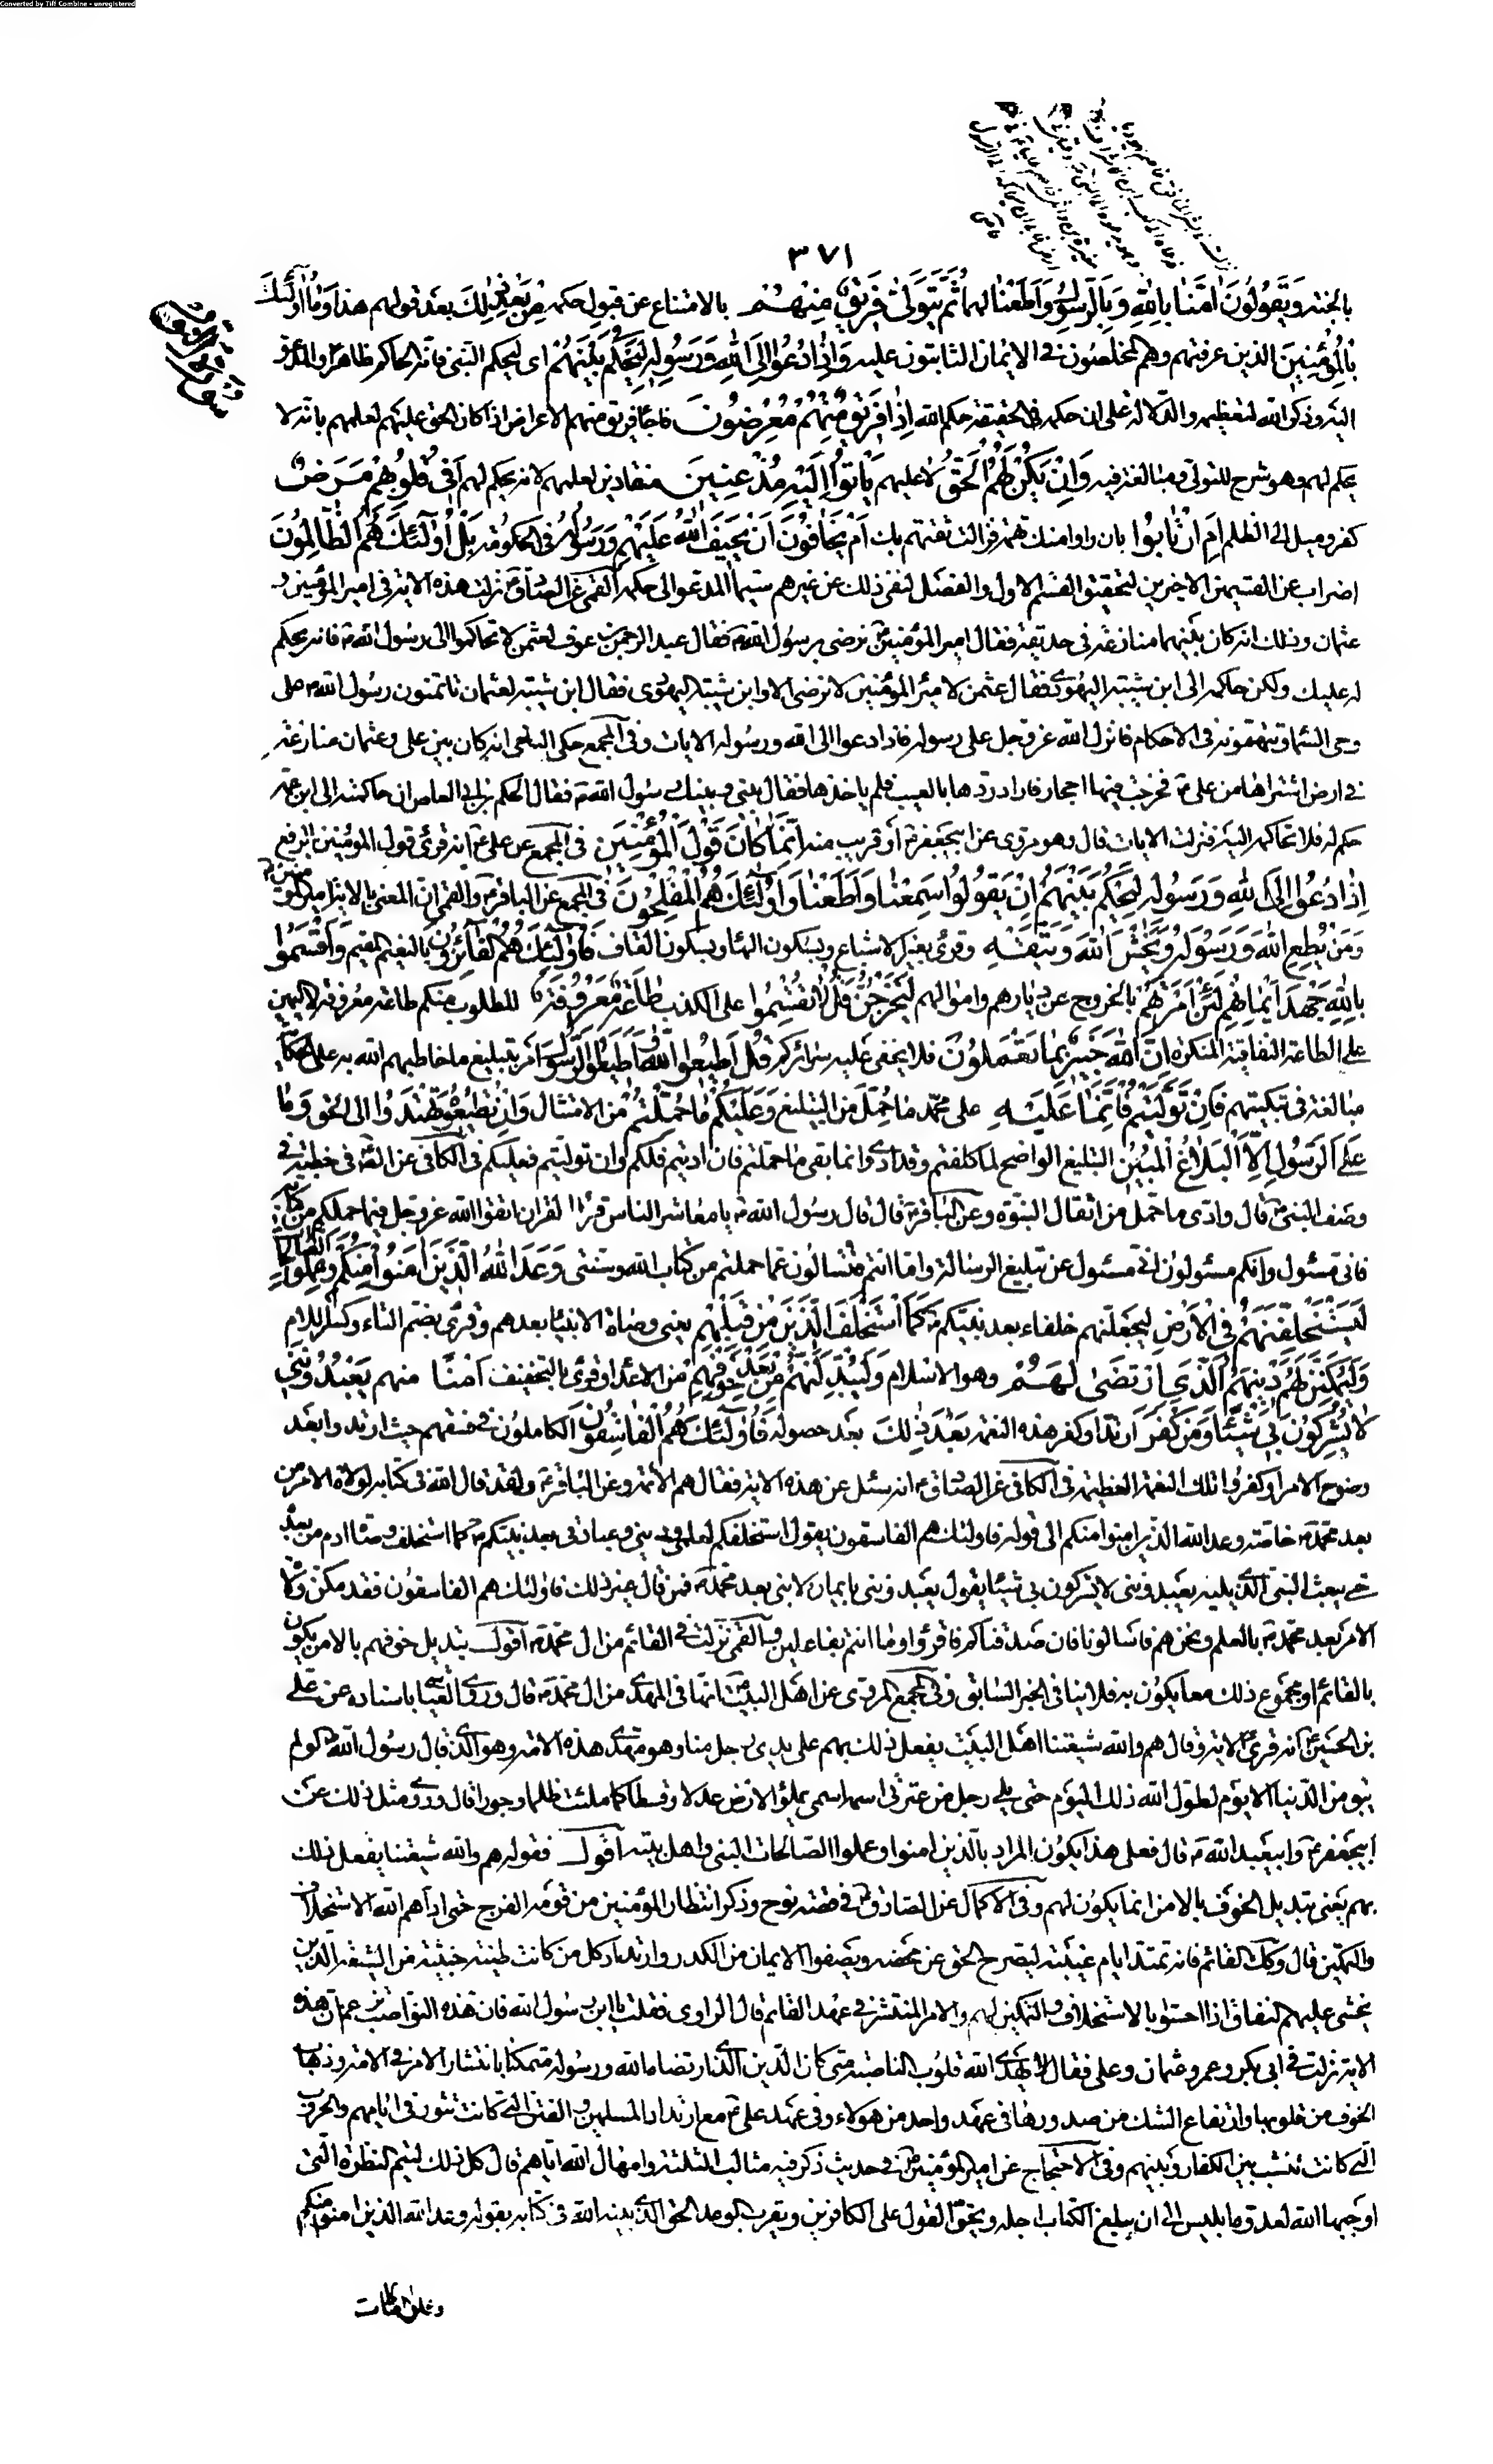 Converted by Tiff Combine - unregistered
٣٧١
بالجنة وَيَقُولُونَ اٰمَنَّا بِاللّٰهِ وَبِالرَّسُولِ وَاَطَعْنَا لهما ثُمَّ يَتَوَلّٰى فَرِيقٌ مِنْهُمْ بالامتناع عن قبول حكمه مِنْ بَعْدِ ذٰلِكَ بعد قولهم هذا وَمَا اُولٰٓئِكَ
بِالْمُؤْمِنِينَ الذين عرفتهم وهم المخلصون في الايمان الثابتون عليه وَاِذَا دُعُوا اِلَى اللّٰهِ وَرَسُولِهِ لِيَحْكُمَ بَيْنَهُمْ اى ليحكم النبي فانه الحاكم ظاهرا والمدعو
اليه وذكر الله لتعظيمه والدلالة على ان حكمه في الحقيقة حكم الله اِذَا فَرِيقٌ مِنْهُمْ مُعْرِضُونَ فاجأ فريق منهم الاعراض اذا كان الحق عليهم لعلمهم بانه لا
يحكم لهم وهو شرح للتولي ومبالغة فيه وَاِنْ يَكُنْ لَهُمُ الْحَقُّ لا عليهم يَأْتُوا اِلَيْهِ مُذْعِنِينَ منقادين لعلمهم لانه يحكم لهم اَفِي قُلُوبِهِمْ مَرَضٌ
كفر وميل الى الظلم اَمِ ارْتَابُوا بان راوا منك تهمة فزالت ثقتهم بك اَمْ يَخَافُونَ اَنْ يَحِيفَ اللّٰهُ عَلَيْهِمْ وَرَسُولُهُ في الحكومة بَلْ اُولٰٓئِكَ هُمُ الظَّالِمُونَ
اضراب عن القسمين الاخيرين لتحقيق القسم الاول والفصل لنفي ذلك عن غيرهم سيما المدعو الى حكمه القمي عن الصادق ع نزلت هذه الاية في امير المؤمنين و
عثمان وذلك انه كان بينهما منازعة في حديقة فقال امير المؤمنين ع نرضى برسول الله ص فقال عبد الرحمن بن عوف لعثمن لا تحاكمه الى رسول الله ص فانه يحكم
له عليك ولكن حاكمه الى ابن شيبة اليهودي فقال عثمن لامير المؤمنين لا نرضى الا بابن شيبة اليهودي فقال ابن شيبة لعثمان تاتمنون رسول الله ص على
وحي السماء وتتهمونه في الاحكام فانزل الله عز وجل على رسوله فاذا دعوا الى الله ورسوله الايات وفي المجمع حكى البلخي انه كان بين علي وعثمان منازعة
في ارض اشتراها من علي ع فخرجت فيها احجار فاراد ردها بالعيب فلم ياخذها فقال بيني وبينك رسول الله ص فقال الحكم بن ابي العاص ان حاكمته الى ابن عمه
حكم له فلا تحاكمه اليه فنزلت الايات قال وهو مروي عن ابيجعفر ع او قريب منه اِنَّمَا كَانَ قَوْلَ الْمُؤْمِنِينَ في المجمع عن علي ع انه قرئ قول المؤمنين بالرفع
اِذَا دُعُوا اِلَى اللّٰهِ وَرَسُولِهِ لِيَحْكُمَ بَيْنَهُمْ اَنْ يَقُولُوا سَمِعْنَا وَاَطَعْنَا وَاُولٰٓئِكَ هُمُ الْمُفْلِحُونَ في المجمع عن الباقر ع والقمي ان المعني بالاية امير المؤمنين ع
وَمَنْ يُطِعِ اللّٰهَ وَرَسُولَهُ وَيَخْشَ اللّٰهَ وَيَتَّقْهِ وقرئ بغير الاشباع وبسكون الهاء وبسكون القاف فَاُولٰٓئِكَ هُمُ الْفَائِزُونَ بالنعيم المقيم وَاَقْسَمُوا
بِاللّٰهِ جَهْدَ اَيْمَانِهِمْ لَئِنْ اَمَرْتَهُمْ بالخروج عن ديارهم واموالهم لَيَخْرُجُنَّ قُلْ لَا تُقْسِمُوا على الكذب طَاعَةٌ مَعْرُوفَةٌ المطلوب منكم طاعة معروفة لا اليمين
على الطاعة النفاقية المنكرة اِنَّ اللّٰهَ خَبِيرٌ بِمَا تَعْمَلُونَ فلا يخفى عليه سرائركم قُلْ اَطِيعُوا اللّٰهَ وَاَطِيعُوا الرَّسُولَ امر بتبليغ ما خاطبهم الله به على الحكاية
مبالغة في تبكيتهم فَاِنْ تَوَلَّيْتُمْ فَاِنَّمَا عَلَيْهِ على محمد مَا حُمِّلَ من التبليغ وَعَلَيْكُمْ مَا حُمِّلْتُمْ من الامتثال وَاِنْ تُطِيعُوهُ تَهْتَدُوا الى الحق وَمَا
عَلَى الرَّسُولِ اِلَّا الْبَلَاغُ الْمُبِينُ التبليغ الواضح لما كلفتم وقد ادى وانما بقي ما حملتم فان اديتم فلكم وان توليتم فعليكم في الكافي عن الصادق في خطبة في
وصف النبي ص قال وادى ما حمل من اثقال النبوة وعن الباقر ع قال قال رسول الله ص يا معاشر الناس قراء القران اتقوا الله عز وجل فيما حملكم من كتابه
فاني مسئول وانكم مسئولون اني مسئول عن تبليغ الرسالة واما انتم فتسالون عما حملتم من كتاب الله وسنتي وَعَدَ اللّٰهُ الَّذِينَ اٰمَنُوا مِنْكُمْ وَعَمِلُوا الصَّالِحَاتِ
لَيَسْتَخْلِفَنَّهُمْ فِي الْاَرْضِ ليجعلنهم خلفاء بعد نبيكم ص كَمَا اسْتَخْلَفَ الَّذِينَ مِنْ قَبْلِهِمْ يعني وصاة الانبياء بعدهم وقرئ بضم التاء وكسر اللام
وَلَيُمَكِّنَنَّ لَهُمْ دِينَهُمُ الَّذِي ارْتَضٰى لَهُمْ وهو الاسلام وَلَيُبَدِّلَنَّهُمْ مِنْ بَعْدِ خَوْفِهِمْ من الاعداء وقرئ بالتخفيف اَمْنًا منهم يَعْبُدُونَنِي
لَا يُشْرِكُونَ بِي شَيْئًا وَمَنْ كَفَرَ ارتد او كفر هذه النعمة بَعْدَ ذٰلِكَ بعد حصوله فَاُولٰٓئِكَ هُمُ الْفَاسِقُونَ الكاملون في فسقهم حيث ارتدوا بعد
وضوح الامر او كفروا تلك النعمة العظيمة في الكافي عن الصادق ع انه سئل عن هذه الاية فقال هم الائمة وعن الباقر ع ولقد قال الله في كتابه لولاة الامر من
بعد محمد ص خاصة وعد الله الذين امنوا منكم الى قوله فاولئك هم الفاسقون يقول استخلفكم لعلمي وديني وعبادتي بعد نبيكم ص كما استخلف وصاة ادم من بعده
حتى يبعث النبي الذي يليه يعبدونني لا يشركون بي شيئا يقول يعبدونني بايمان لا نبي بعد محمد ص فمن قال غير ذلك فاولئك هم الفاسقون فقد مكن ولاة
الامر بعد محمد ص بالعلم ونحن هم فاسالونا فان صدقناكم فاقروا وما انتم بفاعلين والقمي نزلت في القائم من ال محمد ص اقول تبديل خوفهم بالامن يكون
بالقائم او مجموع ذلك معا يكون به فلا ينافي الخبر السابق وفي المجمع المروي عن اهل البيت ع انها في المهدي من ال محمد ص قال وروى العياشي باسناده عن علي
بن الحسين ع انه قرئ الاية وقال هم والله شيعتنا اهل البيت يفعل ذلك بهم على يدي رجل منا وهو مهدي هذه الامة وهو الذي قال رسول الله ص لو لم
يبق من الدنيا الا يوم لطول الله ذلك اليوم حتى يلي رجل من عترتي اسمه اسمي يملؤ الارض عدلا وقسطا كما ملئت ظلما وجورا قال وروي مثل ذلك عن
ابيجعفر ع وابيعبد الله ع قال فعلى هذا يكون المراد بالذين امنوا وعملوا الصالحات النبي واهل بيته اقول فقوله هم والله شيعتنا يفعل ذلك
بهم يعني تبديل الخوف بالامن انما يكون لهم وفي الاكمال عن الصادق ع في قصة نوح وذكر انتظار المؤمنين من قومه الفرج حتى اراهم الله الاستخلاف
والتمكين قال وكذلك القائم فانه تمتد ايام غيبته ليصرح الحق عن محضه ويصفوا الايمان من الكدر وارتداد كل من كانت طينته خبيثة من الشيعة الذين
يخشى عليهم النفاق اذا احسوا بالاستخلاف والتمكين لهم والامر المنتشر في عهد القائم قال الراوي فقلت يا ابن رسول الله فان هذه النواصب تزعم ان هذه
الاية نزلت في ابي بكر وعمر وعثمان وعلي فقال لا يهدي الله قلوب الناصبة متى كان الدين الذي ارتضاه الله ورسوله متمكنا بانتشار الامر في الامة وذهاب
الخوف من قلوبها وارتفاع الشك من صدورها في عهد واحد من هولاء وفي عهد علي ع مع ارتداد المسلمين والفتن التي كانت تثور في ايامهم والحروب
التي كانت تنشب بين الكفار وبينهم وفي الاحتجاج عن امير المؤمنين ع في حديث ذكر فيه مثالب الثلثة وامهال الله اياهم قال كل ذلك لتتم النظرة التي
اوجبها الله لعدوه ابليس الى ان يبلغ الكتاب اجله ويحق القول على الكافرين ويقرب الوعد الحق الذي بينه الله في كتابه بقوله وعد الله الذين امنوا منكم
وعملوا الصالحات